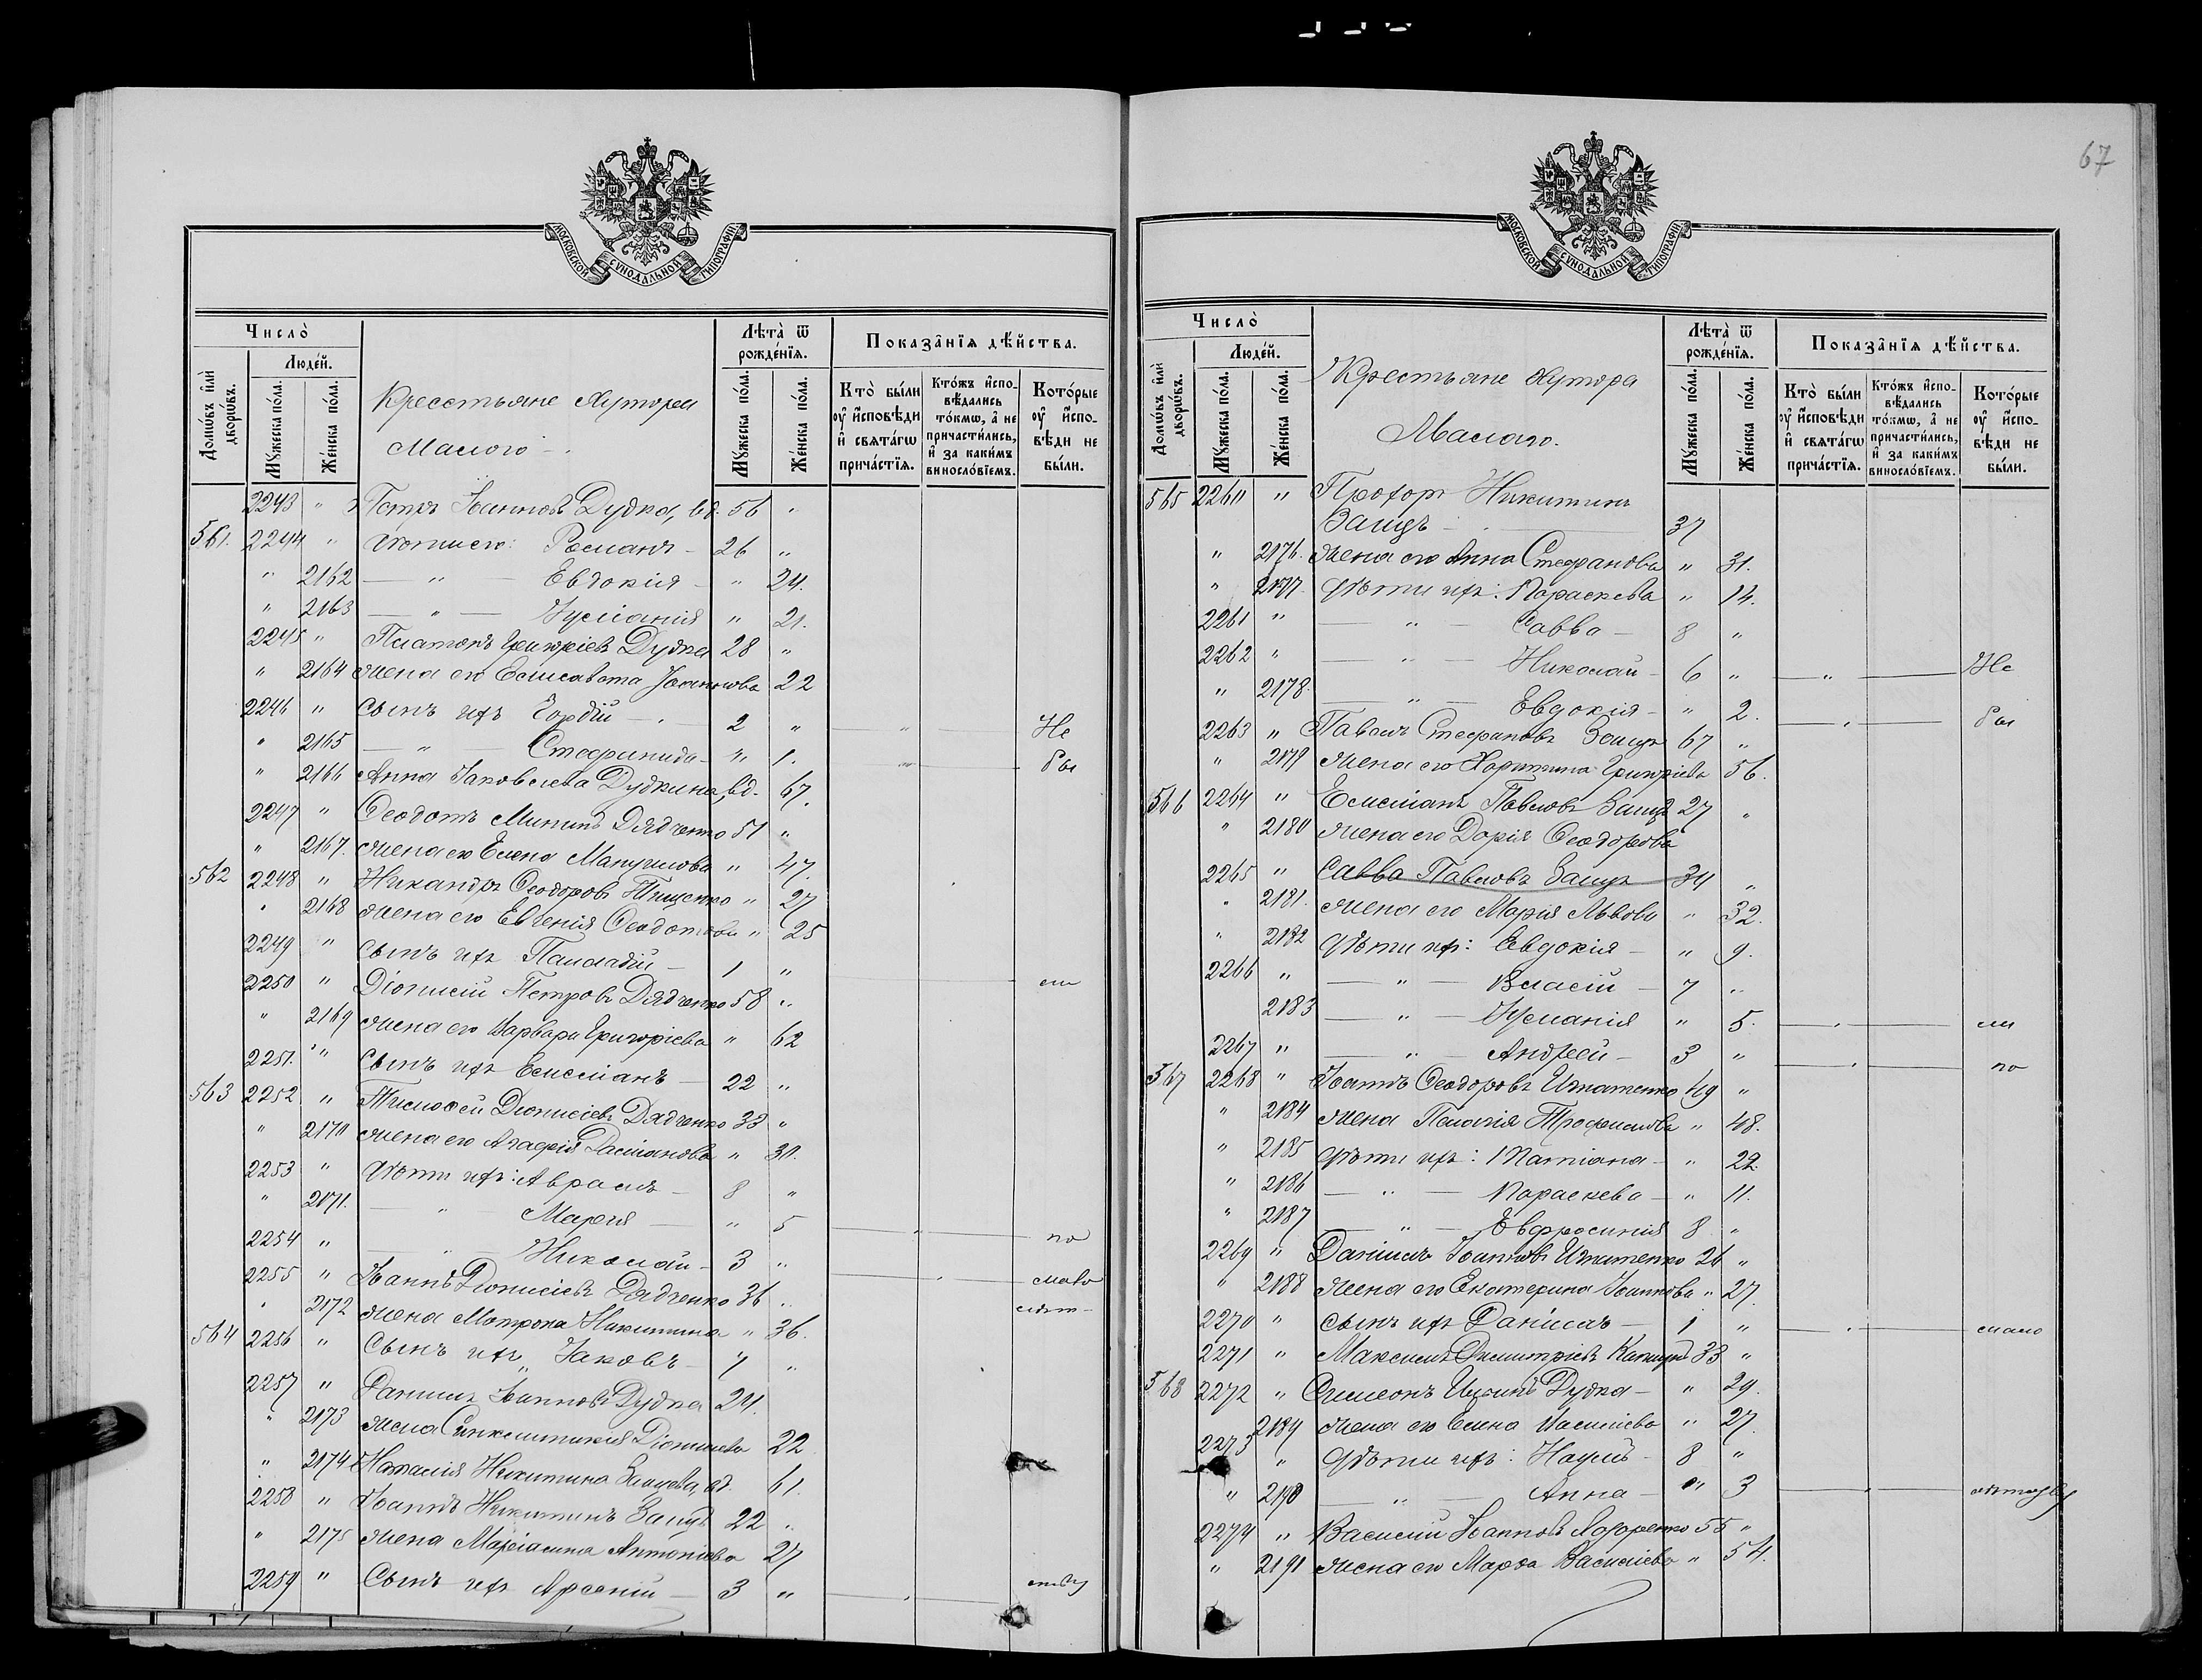 67
МОСКОВСКОЙ СУНОДАЛЬНОЙ ТИПОГРАФІИ
Число̀
Домѡ́въ и҆лѝ дворѡ́въ.
Люде́й.
Му́жеска по́ла.
Же́нска по́ла.
Крестьяне Хутора
Малого
Лѣта̀ ѿ рожде́нїѧ.
Му́жеска по́ла.
Же́нска по́ла.
Показа̑нїѧ дѣ́йства.
Кто̀ бы́ли ᲂу҆ и҆сповѣди и҆ свѧта́гѡ прича́стїѧ.
Кто́жъ и҆сповѣдались то́кмѡ, а҆ не причасти́лись, и҆ за каки́мъ винословіемъ.
Кото́рые ᲂу҆ и҆сповѣди не бы́ли.
2243 " Петръ Іоанновъ Дудка, вд. 56 "
561. 2244 " дѣти его: Романъ 26 "
" 2162 — " — Евдокія " 24.
" 2163 — " — Іуліанія " 21.
2245 " Платонъ Григоріевъ Дудка 28 "
" 2164 жена его Елисавета Іоаннова 22
2246 " сынъ ихъ Гордій 2 " " Не
" 2165 — " — Стефанида " 1. " бы
" 2166 Анна Іаковлева Дудкина, вд. 67.
2247 " Ѳеодотъ Мининъ Дядченко 51 "
" 2167. жена его Елена Мануилова " 47.
562 2248 " Никандръ Ѳеодоровъ Тищенко " 27
" 2168 жена его Евгенія Ѳеодотова " 25
2249 " сынъ ихъ Палладій 1 " ли
2250 " Діонисій Петровъ Дядченко 58 "
" 2169 жена его Варвара Григоріева " 62
2251. " сынъ ихъ Емеліанъ 22 "
563 2252 " Тимоѳей Діонисіевъ Дядченко 33 "
" 2170 жена его Агафія Даміанова " 30.
2253 " дѣти ихъ: Аврамъ 8 "
" 2171. — " — Марія " 5 " по
2254 " — " — Николай 3 " " мало
2255 " Іоаннъ Діонисіевъ Дядченко 36 " лѣт-
" 2172 жена Матрона Никитина " 36.
564 2256 " Сынъ ихъ Іаковъ 7 "
2257 " Даніилъ Іоанновъ Дудка 24.
" 2173 жена Синклитикія Діонисіева 22
" 2174 Наталія Никитина вд. 61.
2258 " Іоаннъ Никитинъ Защъ 22 "
" 2175 жена Маріамна Антоніева 27
2259 " Сынъ ихъ Арсеній 3 " ству
Число̀
Домѡ́въ и҆лѝ дворѡ́въ.
Люде́й.
Му́жеска по́ла.
Же́нска по́ла.
Крестьяне хутора
Малаго.
Лѣта̀ ѿ рожде́нїѧ.
Му́жеска по́ла.
Же́нска по́ла.
Показа̑нїѧ дѣ́йства.
Кто̀ бы́ли ᲂу҆ и҆сповѣди и҆ свѧта́гѡ прича́стїѧ.
Кто́жъ и҆сповѣдались то́кмѡ, а҆ не причасти́лись, и҆ за каки́мъ винословіемъ.
Кото́рые ᲂу҆ и҆сповѣди не бы́ли.
565 2260 " Прохоръ Никитинъ
Защъ 37
" 2176. жена его Анна Стефанова " 31.
" 2177. дѣти ихъ: Параскева " 14.
2261 " — " — Савва 8 "
2262 " — " — Николай 6 " " Не
" 2178. — " — Евдокія " 2. " бы
2263 " Павелъ Стефановъ Защъ 67 "
" 2179 жена его Харитина Григоріева 56.
566 2264 " Емеліанъ Павловъ Защъ 27 "
" 2180 жена его Дарія Ѳеодорова
2265 " Савва Павловъ Защъ 34 "
" 2181. жена его Марія Львова " 32.
" 2182 дѣти ихъ: Евдокія " 9.
2266 " — " — Власій 7 "
2183 — " — Іуліанія " 5. " ли
2267 " — " — Андрей 3 " " по
567 2268 " Іоаннъ Ѳеодоровъ Игнатенко 49 "
" 2184 жена Пелагія Трофимова " 48.
" 2185 дѣти ихъ: Татіана " 22.
" 2186 — " — Параскева " 11.
" 2187 — " — Евфросинія 8 "
2269 " Даніилъ Іоанновъ Игнатенко 26 "
" 2188 жена его Екатерина Іоаннова " 27.
2270 " сынъ ихъ Даніилъ 1 " " мало
2271 " Максимъ Димитріевъ 33 "
568 2272 " Симеонъ Дудка " 29.
2189 жена его Елена Василіева " 27.
2273 " дѣти ихъ: Наумъ 8 "
" 2190 — " — Анна " 3 " лѣтству
2274 " Василій Іоанновъ Захаренко 55 "
" 2191 жена его Марѳа Василіева " 54.